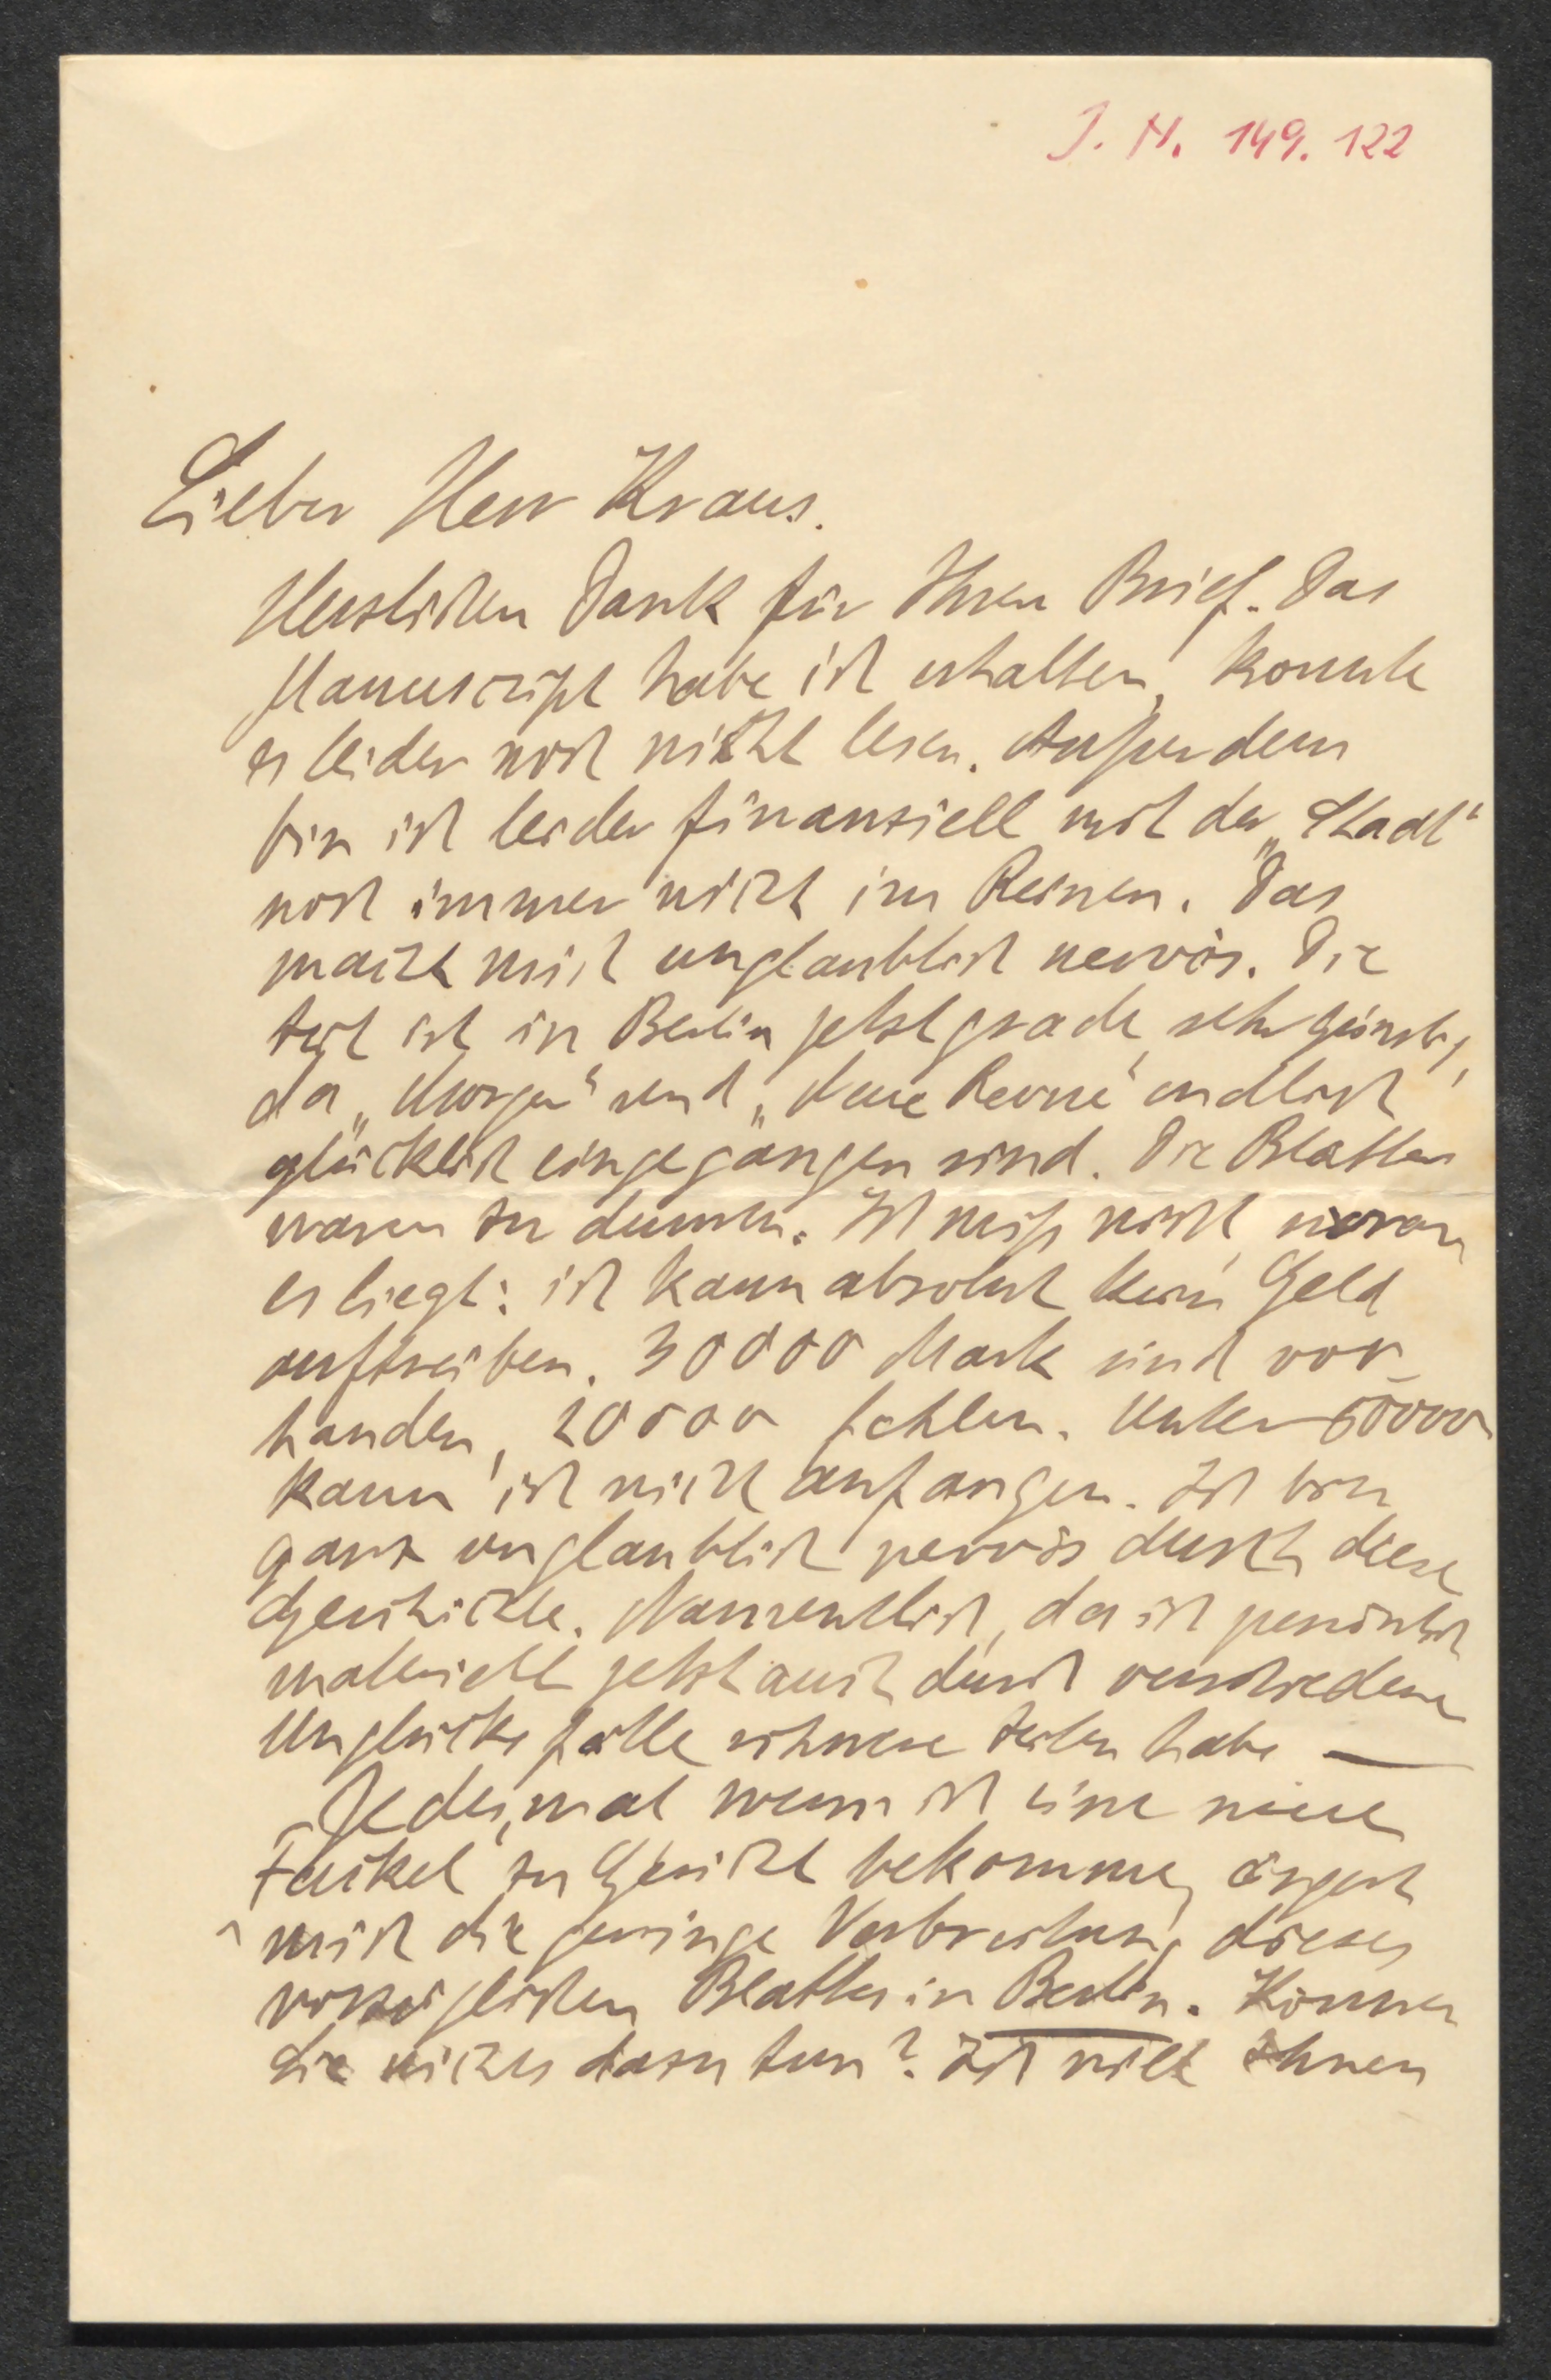 I. N. 149.122
Lieber Herr Kraus.
Herzlichen Dank für Ihren Brief. Das
Manuscript habe ich erhalten, konnte
es leider noch nicht lesen. Außerdem
bin ich leider finanziell mit der „Stadt“
noch immer nicht im Reinen. Das
macht mich unglaublich nervös. Die
Zeit ist in Berlin jetzt grade sehr günstig,
da „Morgen“ und „Neue Revue“ endlich
glücklich eingegangen sind. Die Blätter
waren zu dumm. Ich weiß nicht, woran
es liegt: ich kann absolut kein Geld
auftreiben. 30000 Mark sind vor-
handen, 20000 fehlen. Unter 50000
kann ich nicht anfangen. Ich bin
ganz unglaublich nervös durch diese
Geschichte. Namentlich, da ich persönlich
materiell jetzt auch durch verschiedene
Unglücksfälle schwere Zeiten habe —
Jedesmal wenn ich eine neue
Fackel zu Gesicht bekomme, ärgert
mich die geringe Verbreitung dieses
vorzüglichen Blattes in Berlin. Können
Sie nichts dazu tun? Ich will Ihnen